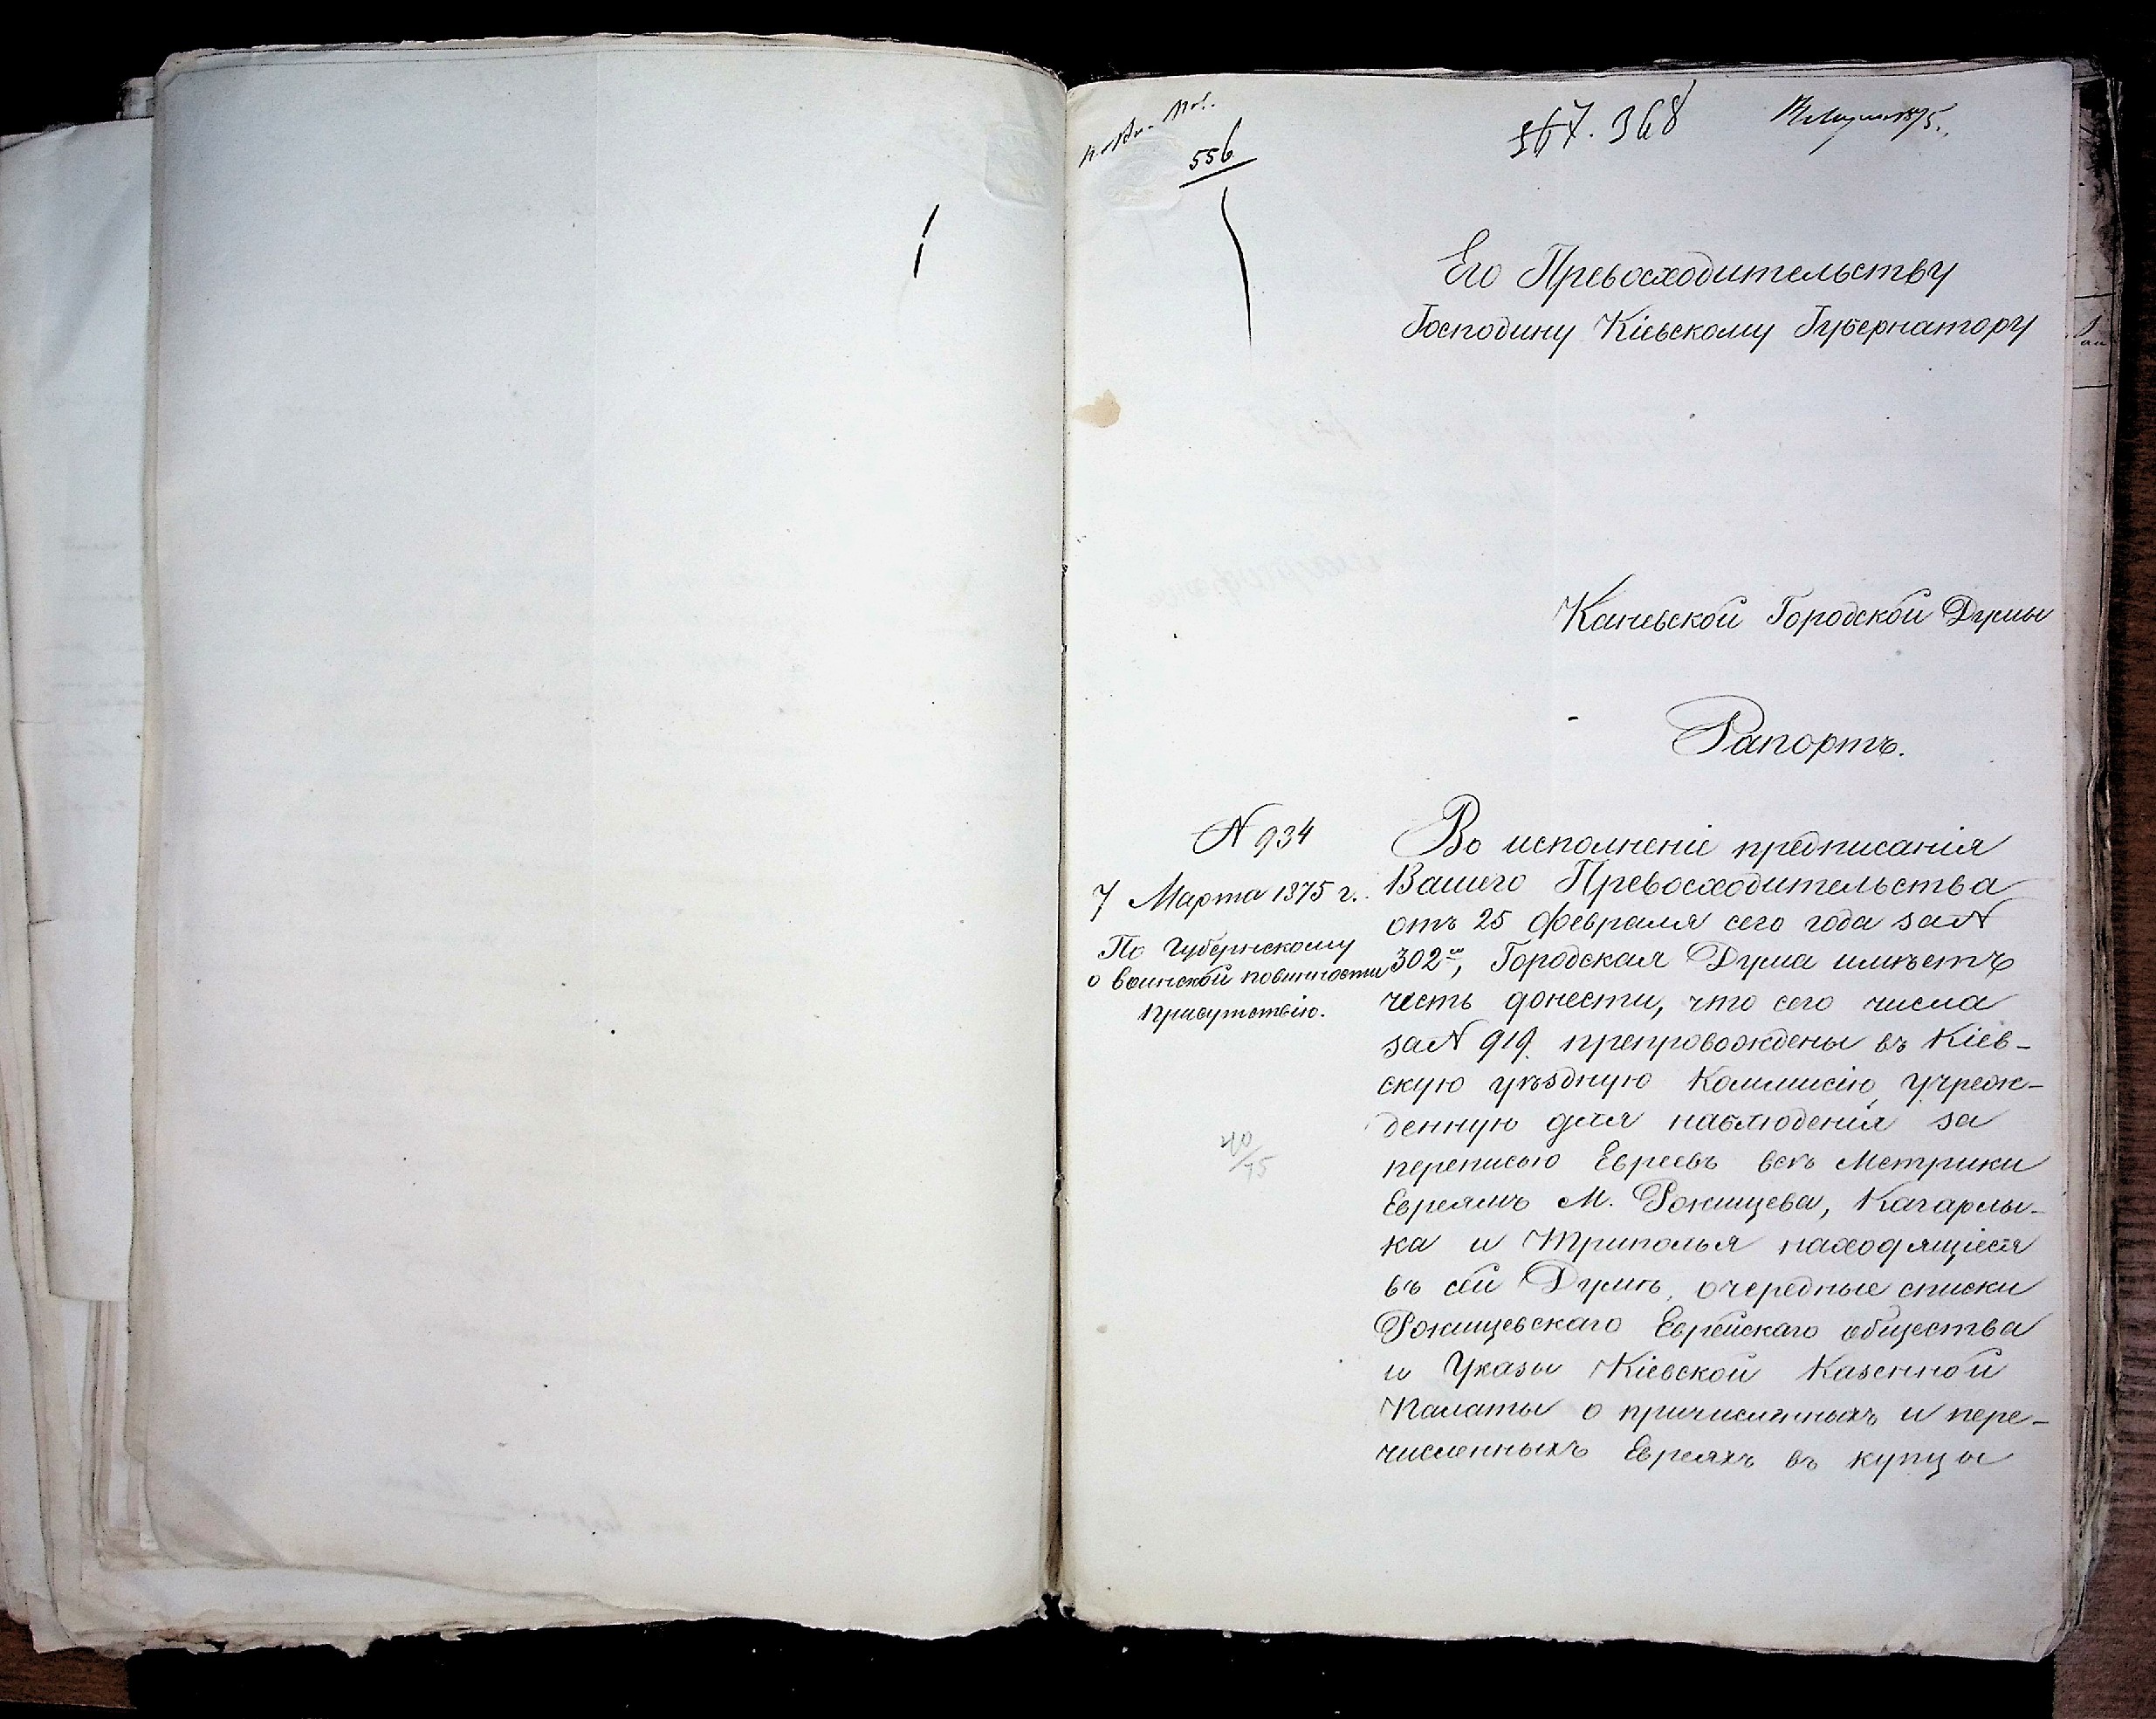 556
367. 368
Его Превосходительству
Господину Кіевскому Губернатору
Каневской Городской Думы
Рапортъ.
N 934
7 Марта 1875 г.
По Губернскому
о воинской повинности
Присутствію.
40/75
Во исполненіе предписанія
Вашего Превосходительства
отъ 25 февраля сего года за N
302м, Городская Дума имѣетъ
честь донести, что сего числа
за N 919 препровождены въ Кіев-
скую уѣздную Коммисію, учреж-
денную для наблюденія за
переписью Евреевъ всѣ Метрики
Евреямъ М. Рокищева, Кагарлы-
ка и Триполья находящіеся
въ сей Думѣ, очередные списки
Рокищевскаго Еврейскаго общества
и Указы Кіевской Казенной
Палаты о причисленныхъ и пере-
численныхъ Евреяхъ въ купцы